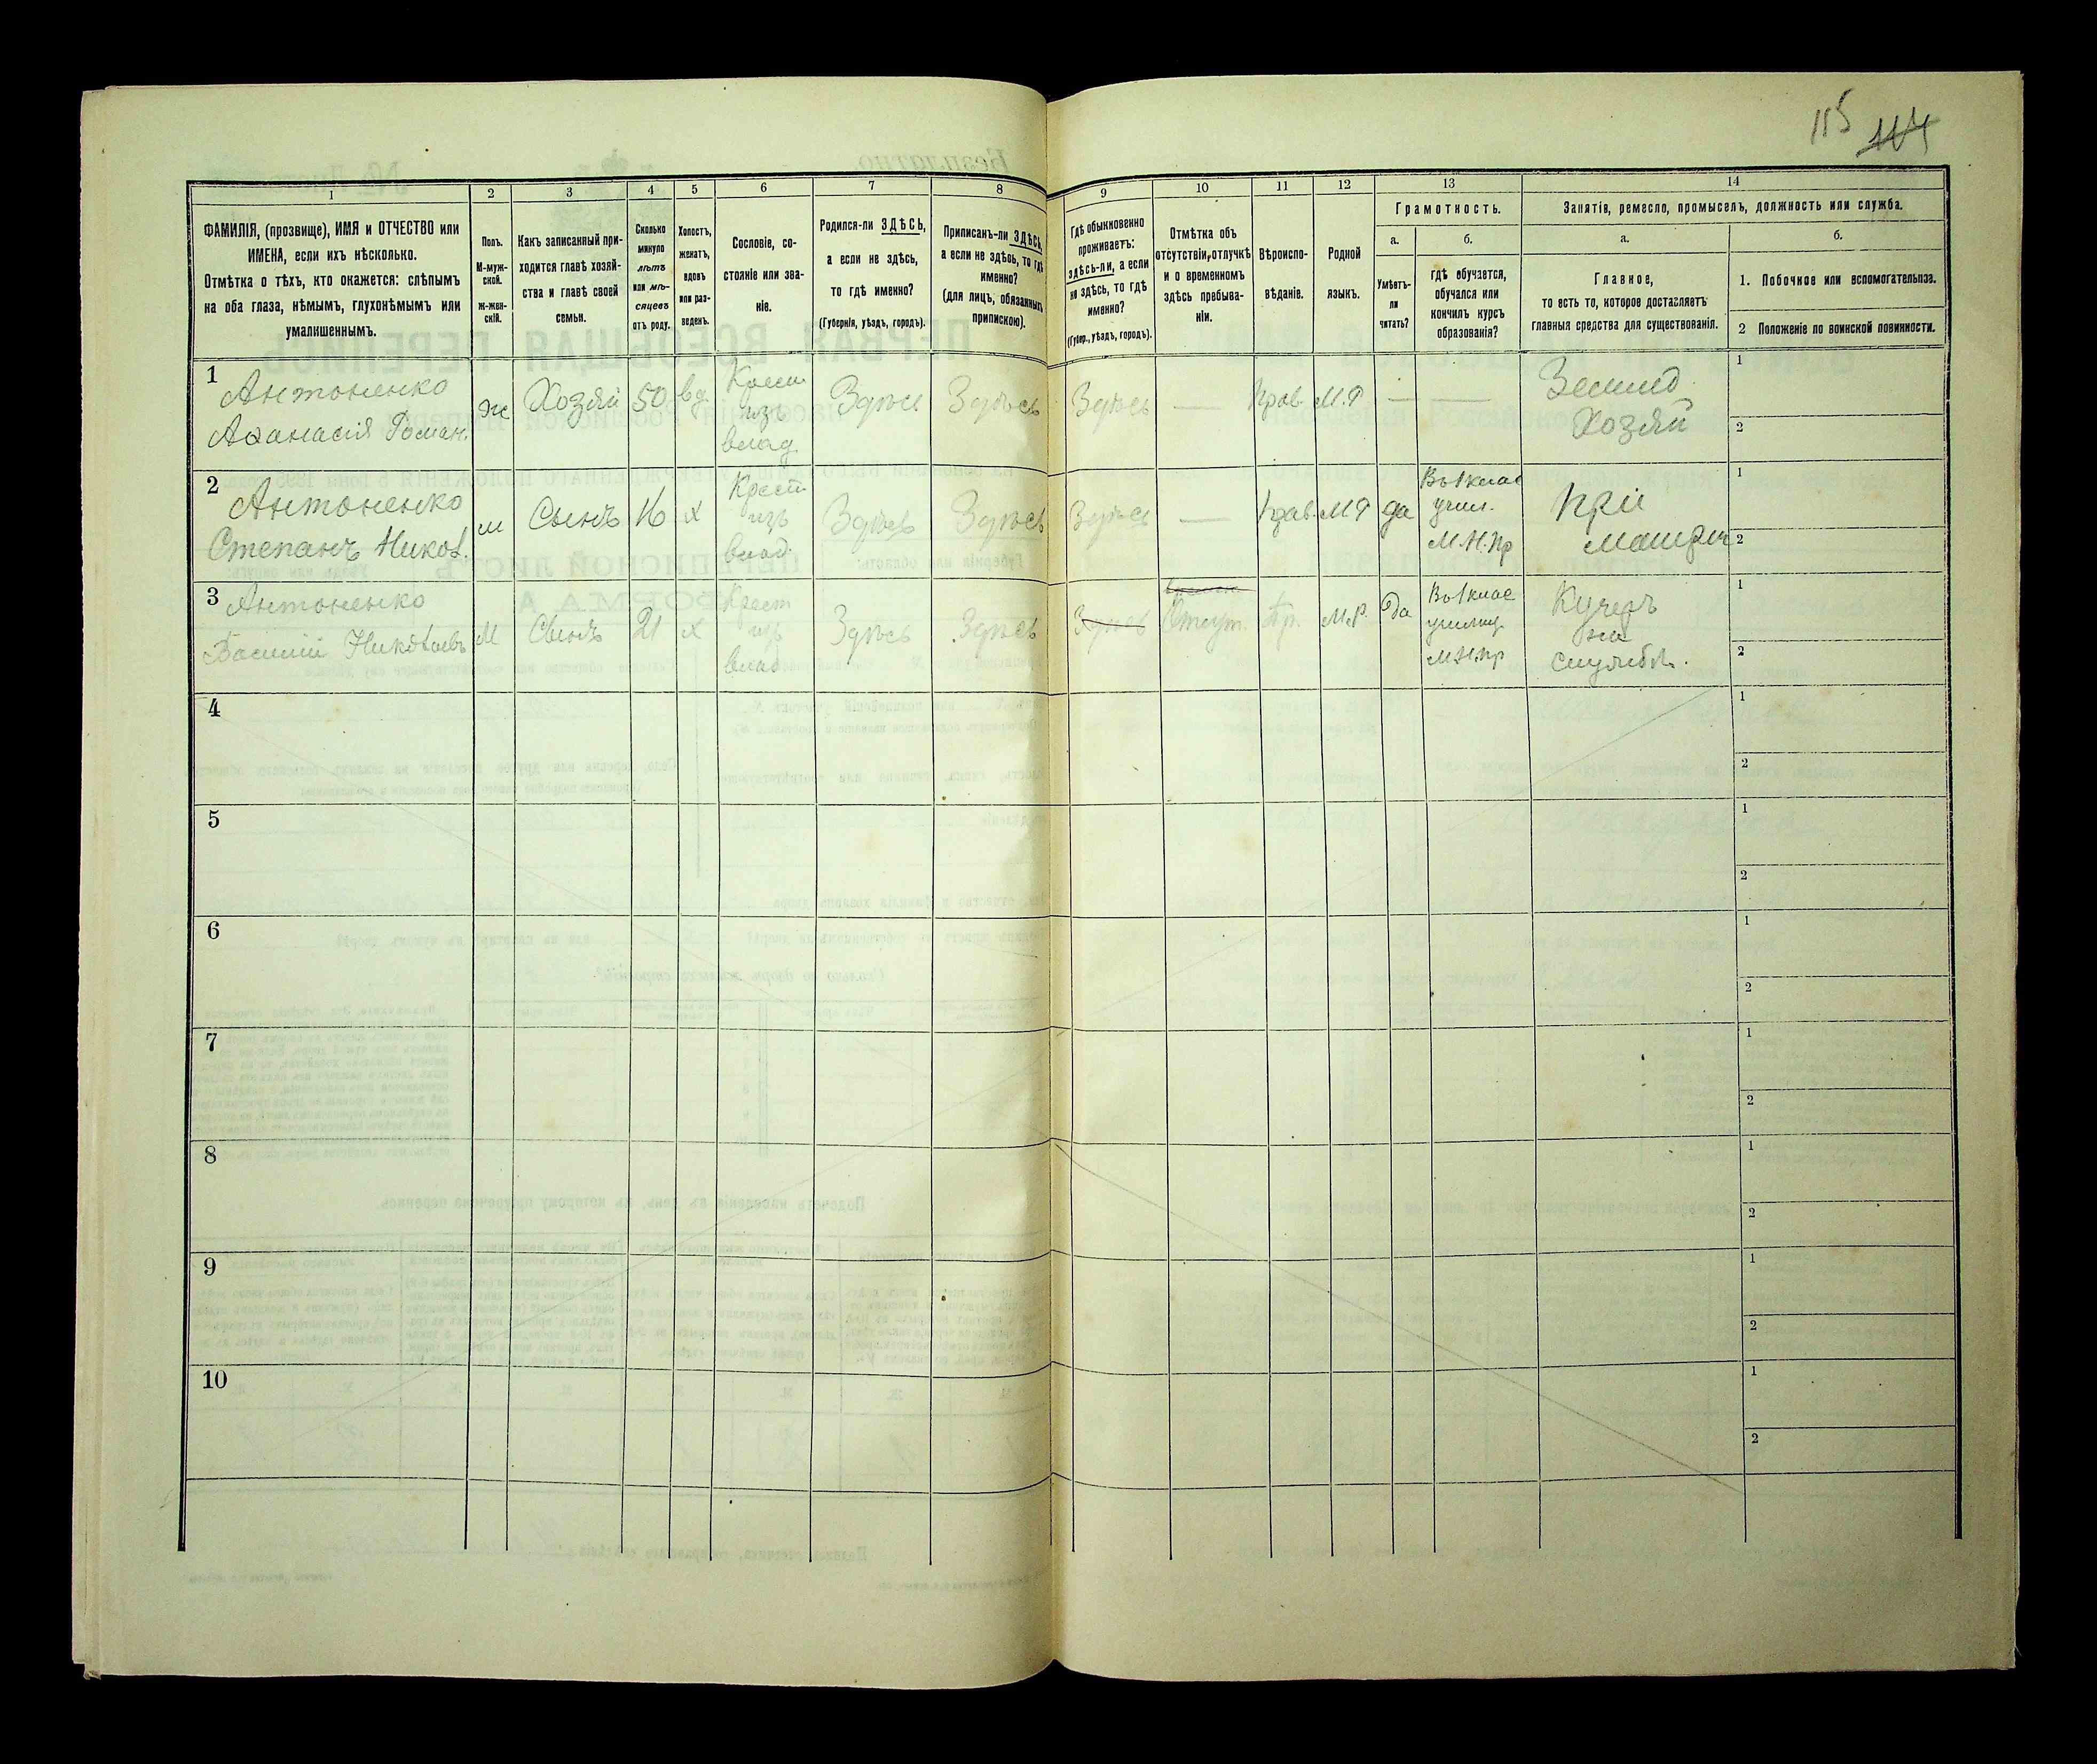 115 114
1 2 3 4 5 6 7 8 9 10 11 12 13 14
ФАМИЛІЯ, (прозвище), ИМЯ и ОТЧЕСТВО или
ИМЕНА, если ихъ нѣсколько.
Отмѣтка о тѣхъ, кто окажется: слѣпымъ
на оба глаза, нѣмымъ, глухонѣмымъ или
умалишеннымъ.
Полъ.
М-муж-
ской.
Ж-жен-
скій.
Какъ записанный при-
ходится главѣ хозяй-
ства и главѣ своей
семьи.
Сколько
минуло
лѣтъ
или мѣ-
сяцевъ
отъ роду.
Холостъ,
женатъ,
вдовъ
или раз-
веденъ.
Сословіе, со-
стояніе или зва-
ніе.
Родился-ли ЗДѢСЬ,
а если не здѣсь,
то гдѣ именно?
(Губернія, уѣздъ, городъ).
Приписанъ-ли ЗДѢСЬ,
а если не здѣсь, то гдѣ
именно?
(для лицъ, обязанныхъ
припискою).
Гдѣ обыкновенно
проживаетъ:
здѣсь-ли, а если
не здѣсь, то гдѣ
именно?
(Губер., уѣздъ, городъ).
Отмѣтка объ
отсутствіи, отлучкѣ
и о временномъ
здѣсь пребыва-
ніи.
Вѣроиспо-
вѣданіе.
Родной
языкъ.
Грамотность.
а.
Умѣетъ-
ли
читать?
б.
гдѣ обучается,
обучался или
кончилъ курсъ
образованія?
Занятія, ремесло, промыселъ, должность или служба.
а.
Главное,
то есть то, которое доставляетъ
главныя средства для существованія.
б.
1. Побочное или вспомогательная.
2 Положеніе по воинской повинности.
1 Антоненко
Аѳанасія Роман.
ж Хозяй 50 вд.
Крест
изъ
влад.
Здѣсь Здѣсь Здѣсь — Прав. М.Р — —
Землед
Хозяй
1
2
2 Антоненко
Степанъ Никол.
м Сынъ 16 х
Крест
изъ
влад.
Здѣсь Здѣсь Здѣсь — Прав. М Р да
Въ 1 клас
учил.
М.Н.Пр
При
матери
1
2
3 Антоненко
Василій Николаевъ
М Сынъ 21 х
Крест
изъ
влад.
Здѣсь Здѣсь Здѣсь Отсут. Пр. М.Р. Да
Въ 1 клас
училищ
М.Н.Пр
Кучеръ
на
службѣ.
1
2
4
1
2
5
1
2
6
1
2
7
1
2
8
1
2
9
1
2
10
1
2